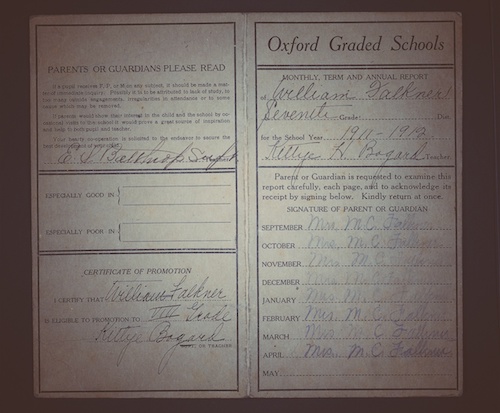 PARENTS OR GUARDIANS PLEASE READ
E.P., or
on any subject, it should be made a mat-
ter of immediate inquiry. Possibly it is to be attributed to lack of study, to
too many outside engagements, irregularities in attendance or to some
cause which may be removed.
If parents would show their interest in the child and the school by oc-
casional visits to the school it would prove a great source of inspiration
and help to both pupil and teacher.
Your hearty co-operation is solicited in the endeavor to secure the
best
Supt
ESPECIALLY GOOD IN
ESPECIALLY POOR IN
CERTIFICATE OF PROMOTION
I CERTIFY THAT William Falkner
IS ELIGIBLE TO PROMOTION TO Grade
Kittye Bogard
OR TEACHER
Oxford Graded Schools
MONTHLY, TERM AND ANNUAL REPORT
of William Falkner
Seventh Grade Div.
for the School Year 1911-1912
Kittye H. Bogard Teacher
Parent or Guardian is requested to examine this
report carefully, each page, and to acknowledge its
receipt by signing below. Kindly return at once.
SIGNATURE OF PARENT OR GUARDIAN
SEPTEMBER Mrs. M.C. Falkner
OCTOBER Mrs. M.C. Falkner
NOVEMBER Mrs. M.C. Falkner
DECEMBER Falkner
JANUARY Mrs. M.C. Falkner
FEBRUARY Mrs. M.C. Falkner
MARCH Mrs. M.C. Falkner
APRIL Mrs. M.C. Falkner
MAY